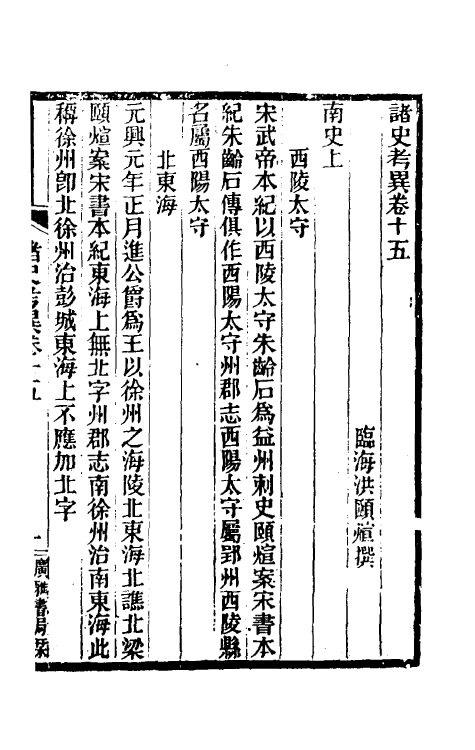 諸史考異卷十五
臨海洪頤煊撰
南史上
西陵太守
宋武帝本紀以西陵太守朱齡石爲益州刺史頤煊案宋書本
紀朱齡石傳俱作西陽太守州郡志西陽太守屬郢州西陵縣
名屬西陽太守
北東海
元興元年正月進公爵爲王以徐州之海陵北東海北譙北梁
頤煊案宋書本紀東海上無北字州郡志南徐州治南東海此
稱徐州卽北徐州治彭城東海上不應加北字
諸史考異卷十五
一
廣雅書局栞